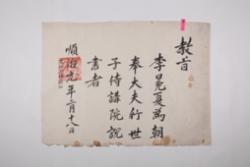 教旨
李冕夏爲朝
奉大夫行世
子侍講院說
書者
順治年月十八日